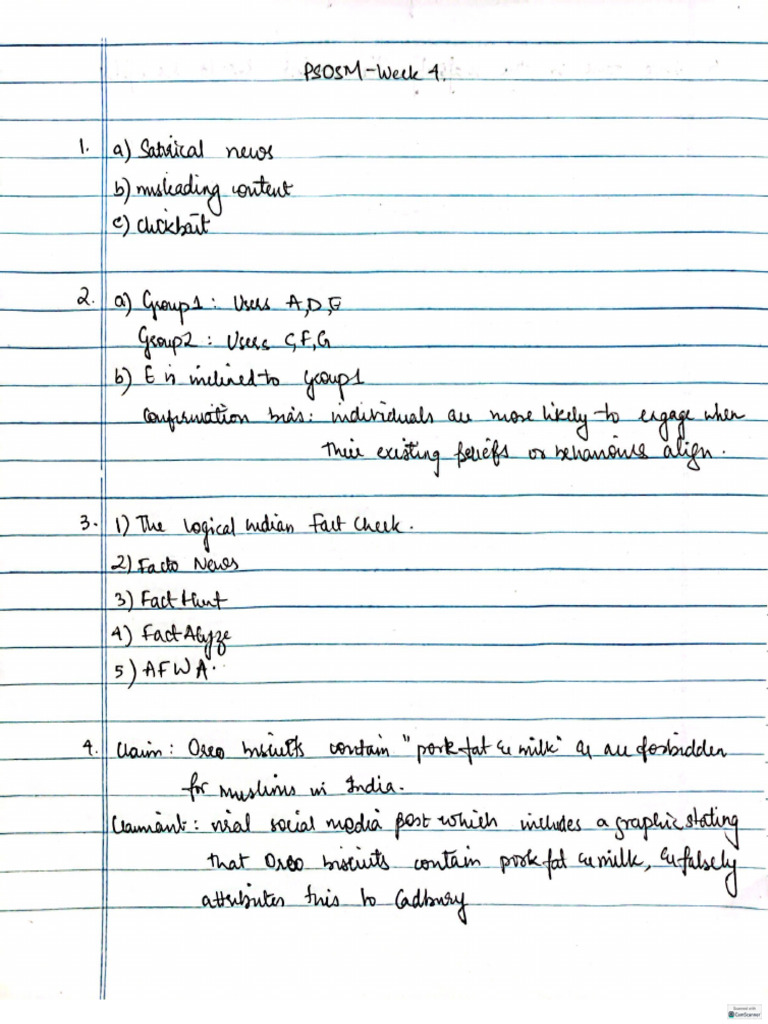 PSOSM-Week 4.
1. a) Satirical news
b) misleading content
c) Clickbait
2. a) Group1: Users A,D,E
Group2: Users C,F,G
b) E is inclined to group1
Confirmation bias: individuals are more likely to engage when
their existing beliefs or behaviours align.
3. 1) The Logical Indian Fact Check.
2) Facto News
3) Fact Hunt
4) FactAlyze
5) AFWA.
4. Claim: Oreo biscuits contain "pork fat & milk" & are forbidden
for muslims in India.
Claimant: viral social media post which includes a graphic stating
that Oreo biscuits contain pork fat & milk, & falsely
attributes this to Cadbury
Scanned with
CamScanner